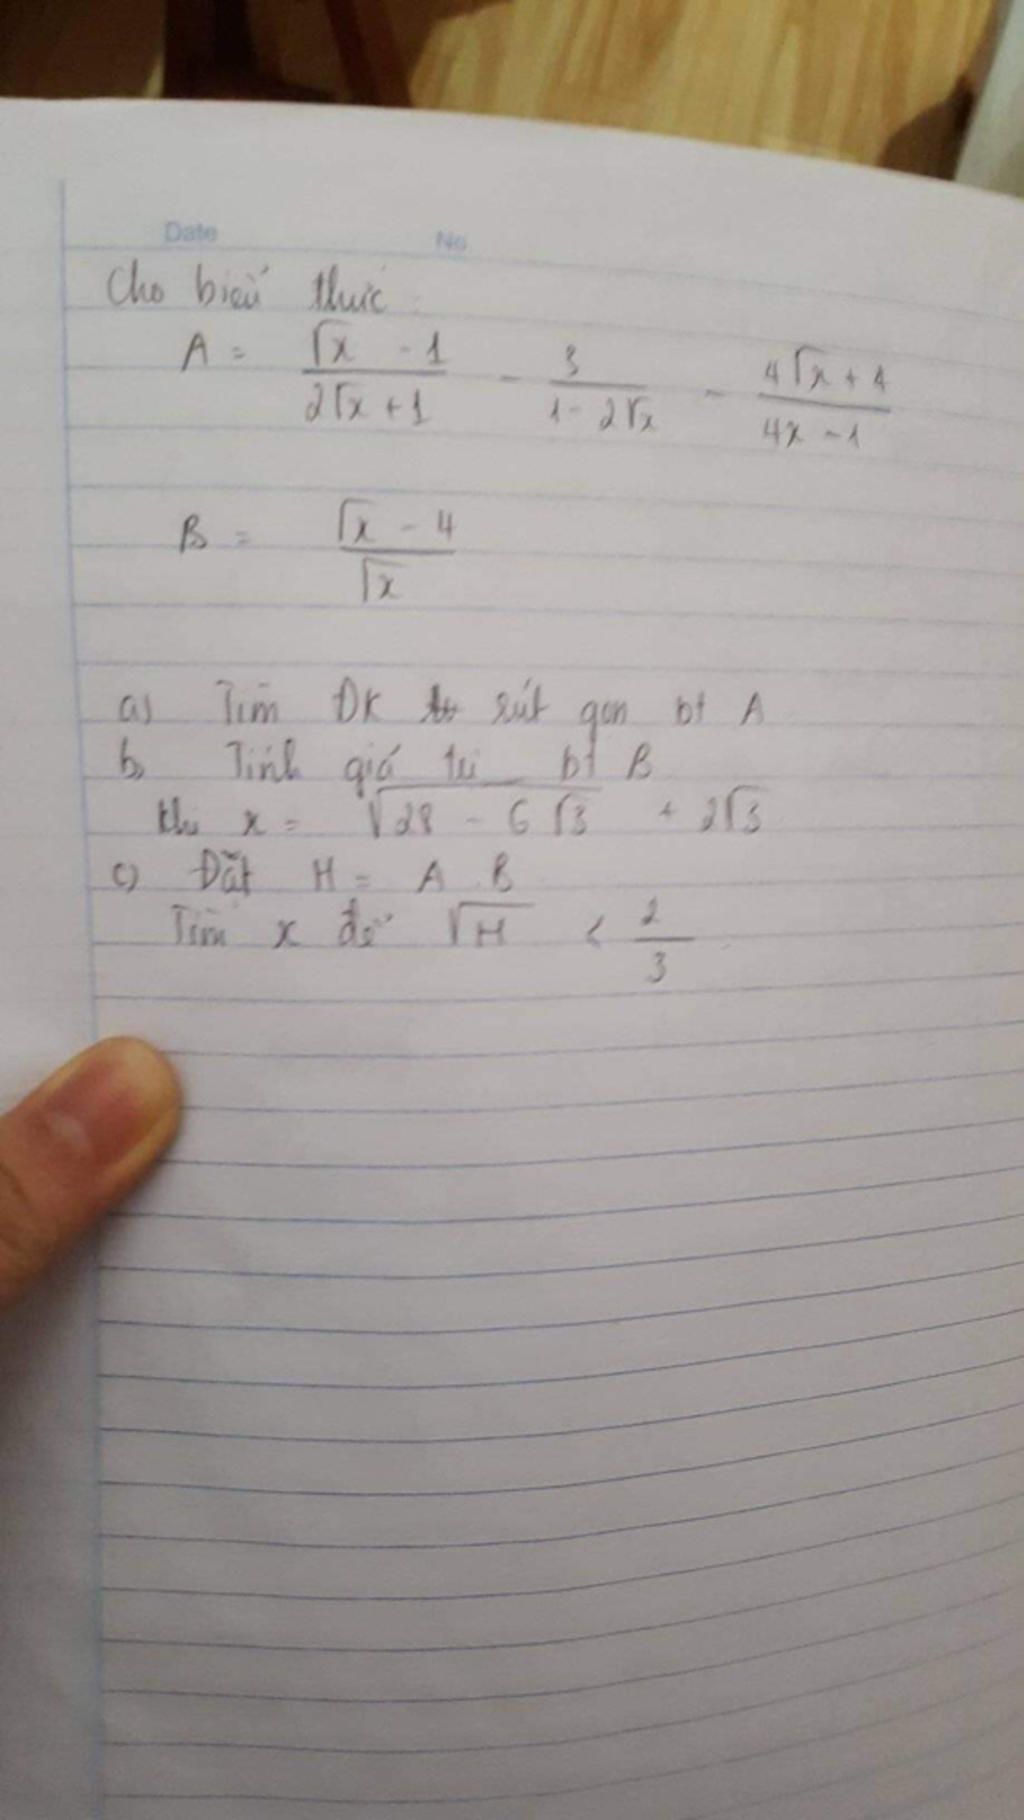 Date No
Cho biểu thức :
A = (√x - 1)/(2√x + 1) - 3/(1 - 2√x) - (4√x + 4)/(4x - 1)
B = (√x - 4)/√x
a) Tìm ĐK rút gọn bt A
b) Tính giá trị bt B
khi x = √(28 - 6√3) + 2√3
c) Đặt H = A . B
Tìm x để √H < 2/3